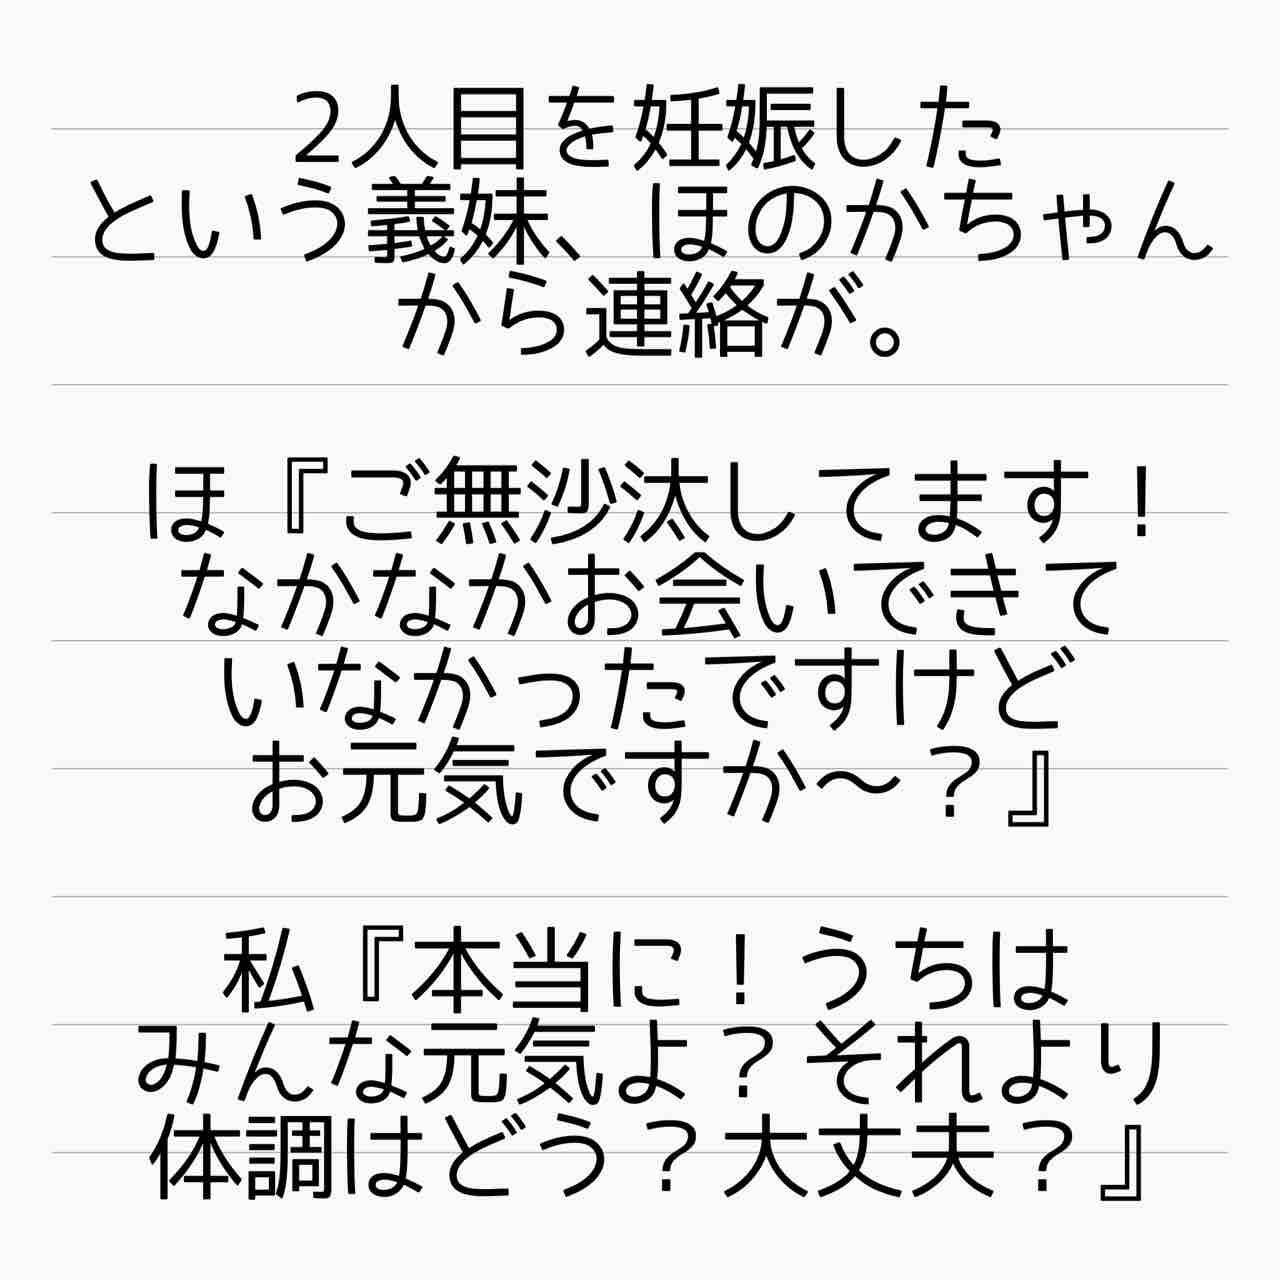 2人目を妊娠した
という義妹、ほのかちゃん
から連絡が。
ほ『ご無沙汰してます！
なかなかお会いできて
いなかったですけど
お元気ですか〜？』
私『本当に！うちは
みんな元気よ？それより
体調はどう？大丈夫？』